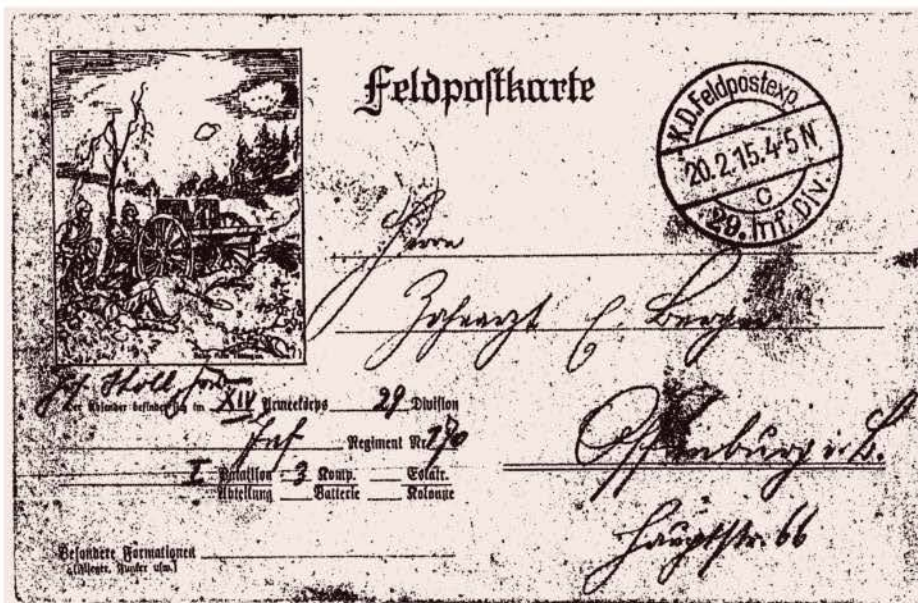 Feldpostkarte
K.D.Feldpostexp.
20.2.15.4-5N
c
29. Inf. Div.
Herrn
Zahnarzt C. Berger
Offenburg i. B.
Hauptstr. 66
Stoll
Der Absender befindet sich im XIV Armeekorps 29 Division
Inf Regiment Nr. 170
I Bataillon 3 Komp. Eskadr.
Abteilung Batterie Kolonne
Besondere Formationen
(Flieger, Funker usw.)